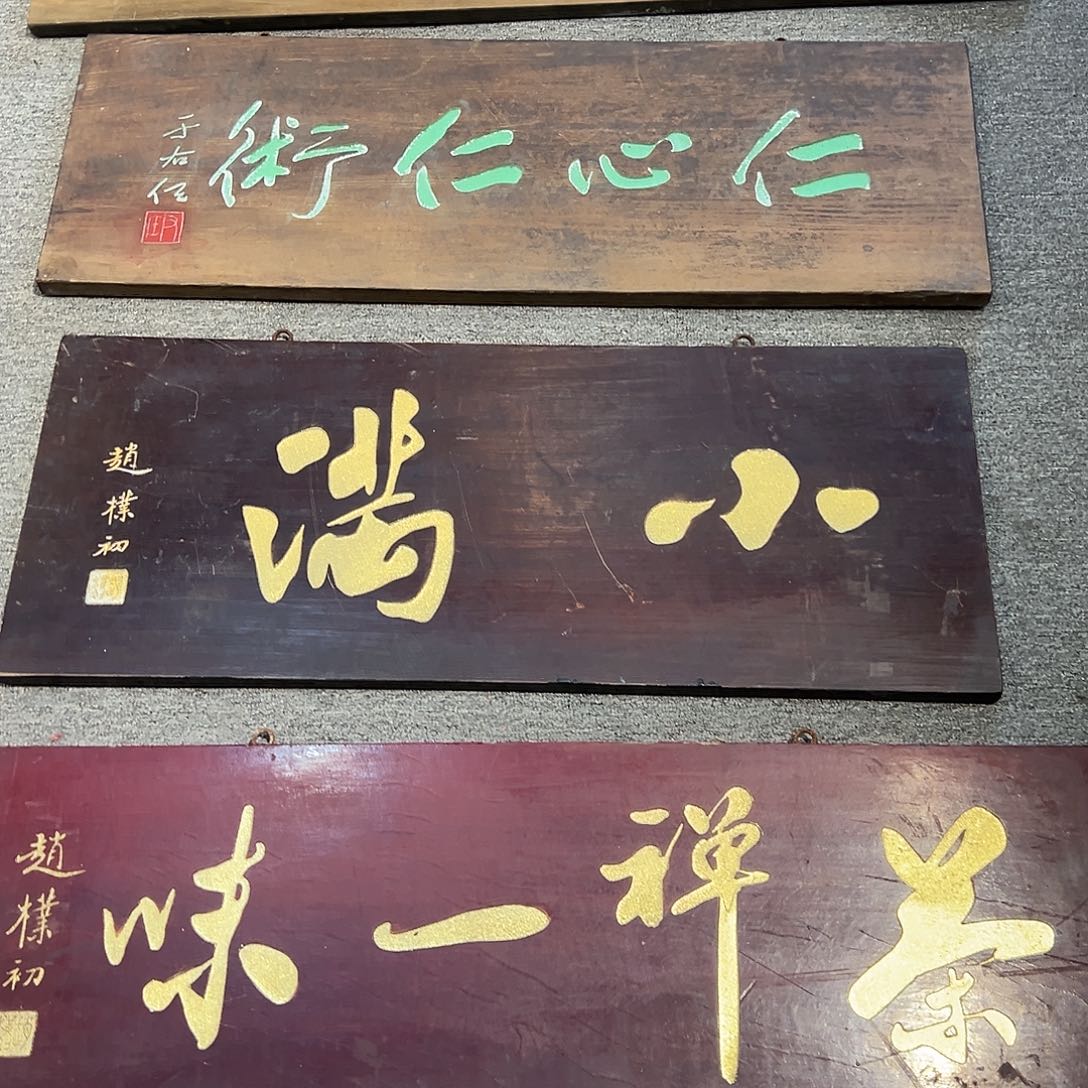 仁心仁術
于右任
小满
趙樸初
茶禅一味
趙樸初